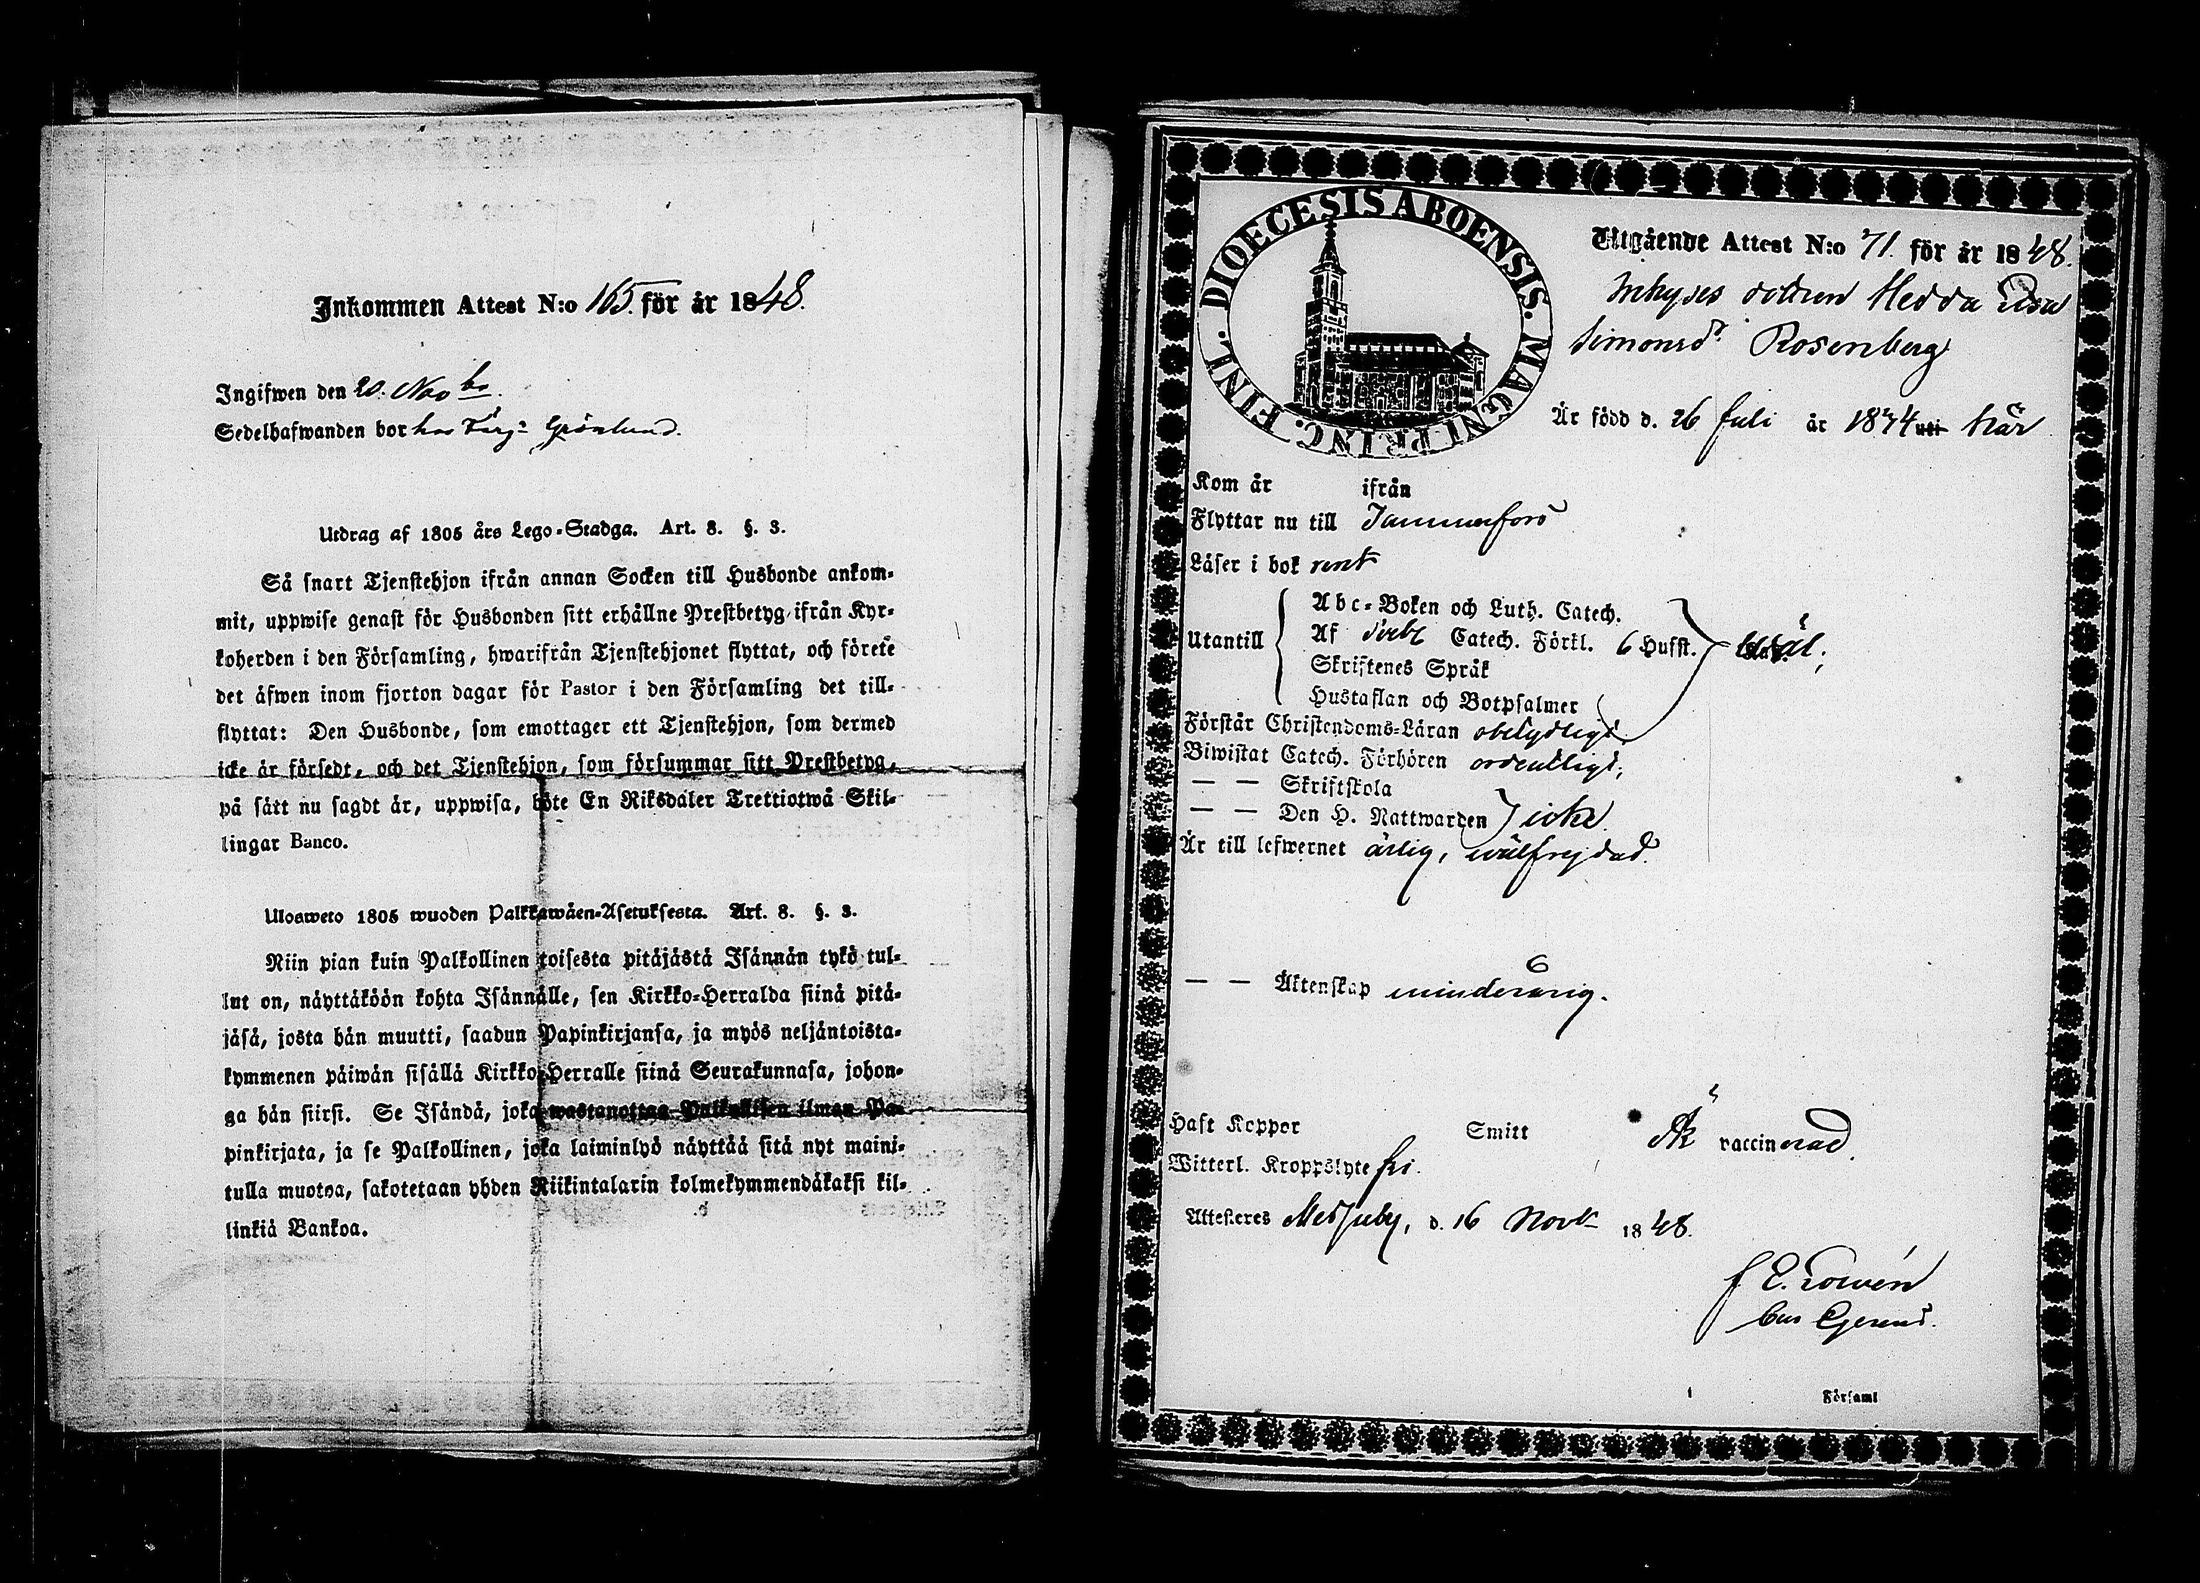 Inkommen Attest N:o 165. för år 1848.
Ingifwen den 20. Nov
Sedelhafwanden bor hos Grönlund.
Utdrag af 1805 års Lego-Stadga. Art. 8. §. 3.
Så snart Tjenstehjon ifrån annan Socken till Husbonde ankom-
mit, uppwise genast för Husbonden sitt erhållne Prestbetyg ifrån Kyr-
koherden i den Församling, hwarifrån Tjenstehjonet flyttat, och förete
det äfwen inom fjorton dagar för Pastor i den Församling det till-
flyttat: Den Husbonde, som emottager ett Tjenstehjon, som dermed
icke är försedt, och det Tjenstehjon, som försummar sitt Prestbetyg,
på sätt nu sagdt är, uppwisa, böte En Riksdaler Trettiotwå Skil-
lingar Banco.
Ulosweto 1805 wuoden Palkkawäen-Asetuksesta. Art. 8. §. 3.
Niin pian kuin Palkollinen toisesta pitäjästä Isännän tykö tul-
lut on, näyttäköön kohta Isännälle, sen Kirkko-Herralda siinä pitä-
jäsä, josta hän muutti, saadun Papinkirjansa, ja myös neljäntoista-
kymmenen päiwän sisällä Kirkko-Herralle siinä Seurakunnasa, johon-
ga hän siirsi. Se Isändä, joka wastanottaa Palkollisen ilman Pa-
pinkirjata, ja se Palkollinen, joka laiminlyö näyttää sitä nyt maini-
tulla muotoa, sakotetaan yhden Riikintalarin kolmekymmendäkaksi kil-
linkiä Bankoa.
DIOECESIS ABOENSIS. MAGNI PRINC. FINL.
Utgående Attest N:o 71. för år 1848.
Inhyses dottren Hedda
Simonsd:r Rosenberg
Är född d. 26 Juli år 1834 uti här
Kom år ifrån
Flyttar nu till Tammerfors
Läser i bok rent
Utantill
Abc-Boken och Luth. Catech.
Af Svebl Catech. Förkl. 6 Hufst. wäl;
Skriftenes Språk
Hustaflan och Botpsalmer
Förstår Christendoms-Läran obetydligt.
Biwistat Catech. Förhören ordentligt;
— — Skriftskola
— — Den H. Nattwarden icke.
Är till lefwernet ärlig, wälfrejdad.
— — Äktenskap minderårig.
Haft Koppor Smitt Är vaccinerad.
Witterl. Kroppslyte fri.
Attesteras Messuby, d. 16 Novb 1848.
Församl